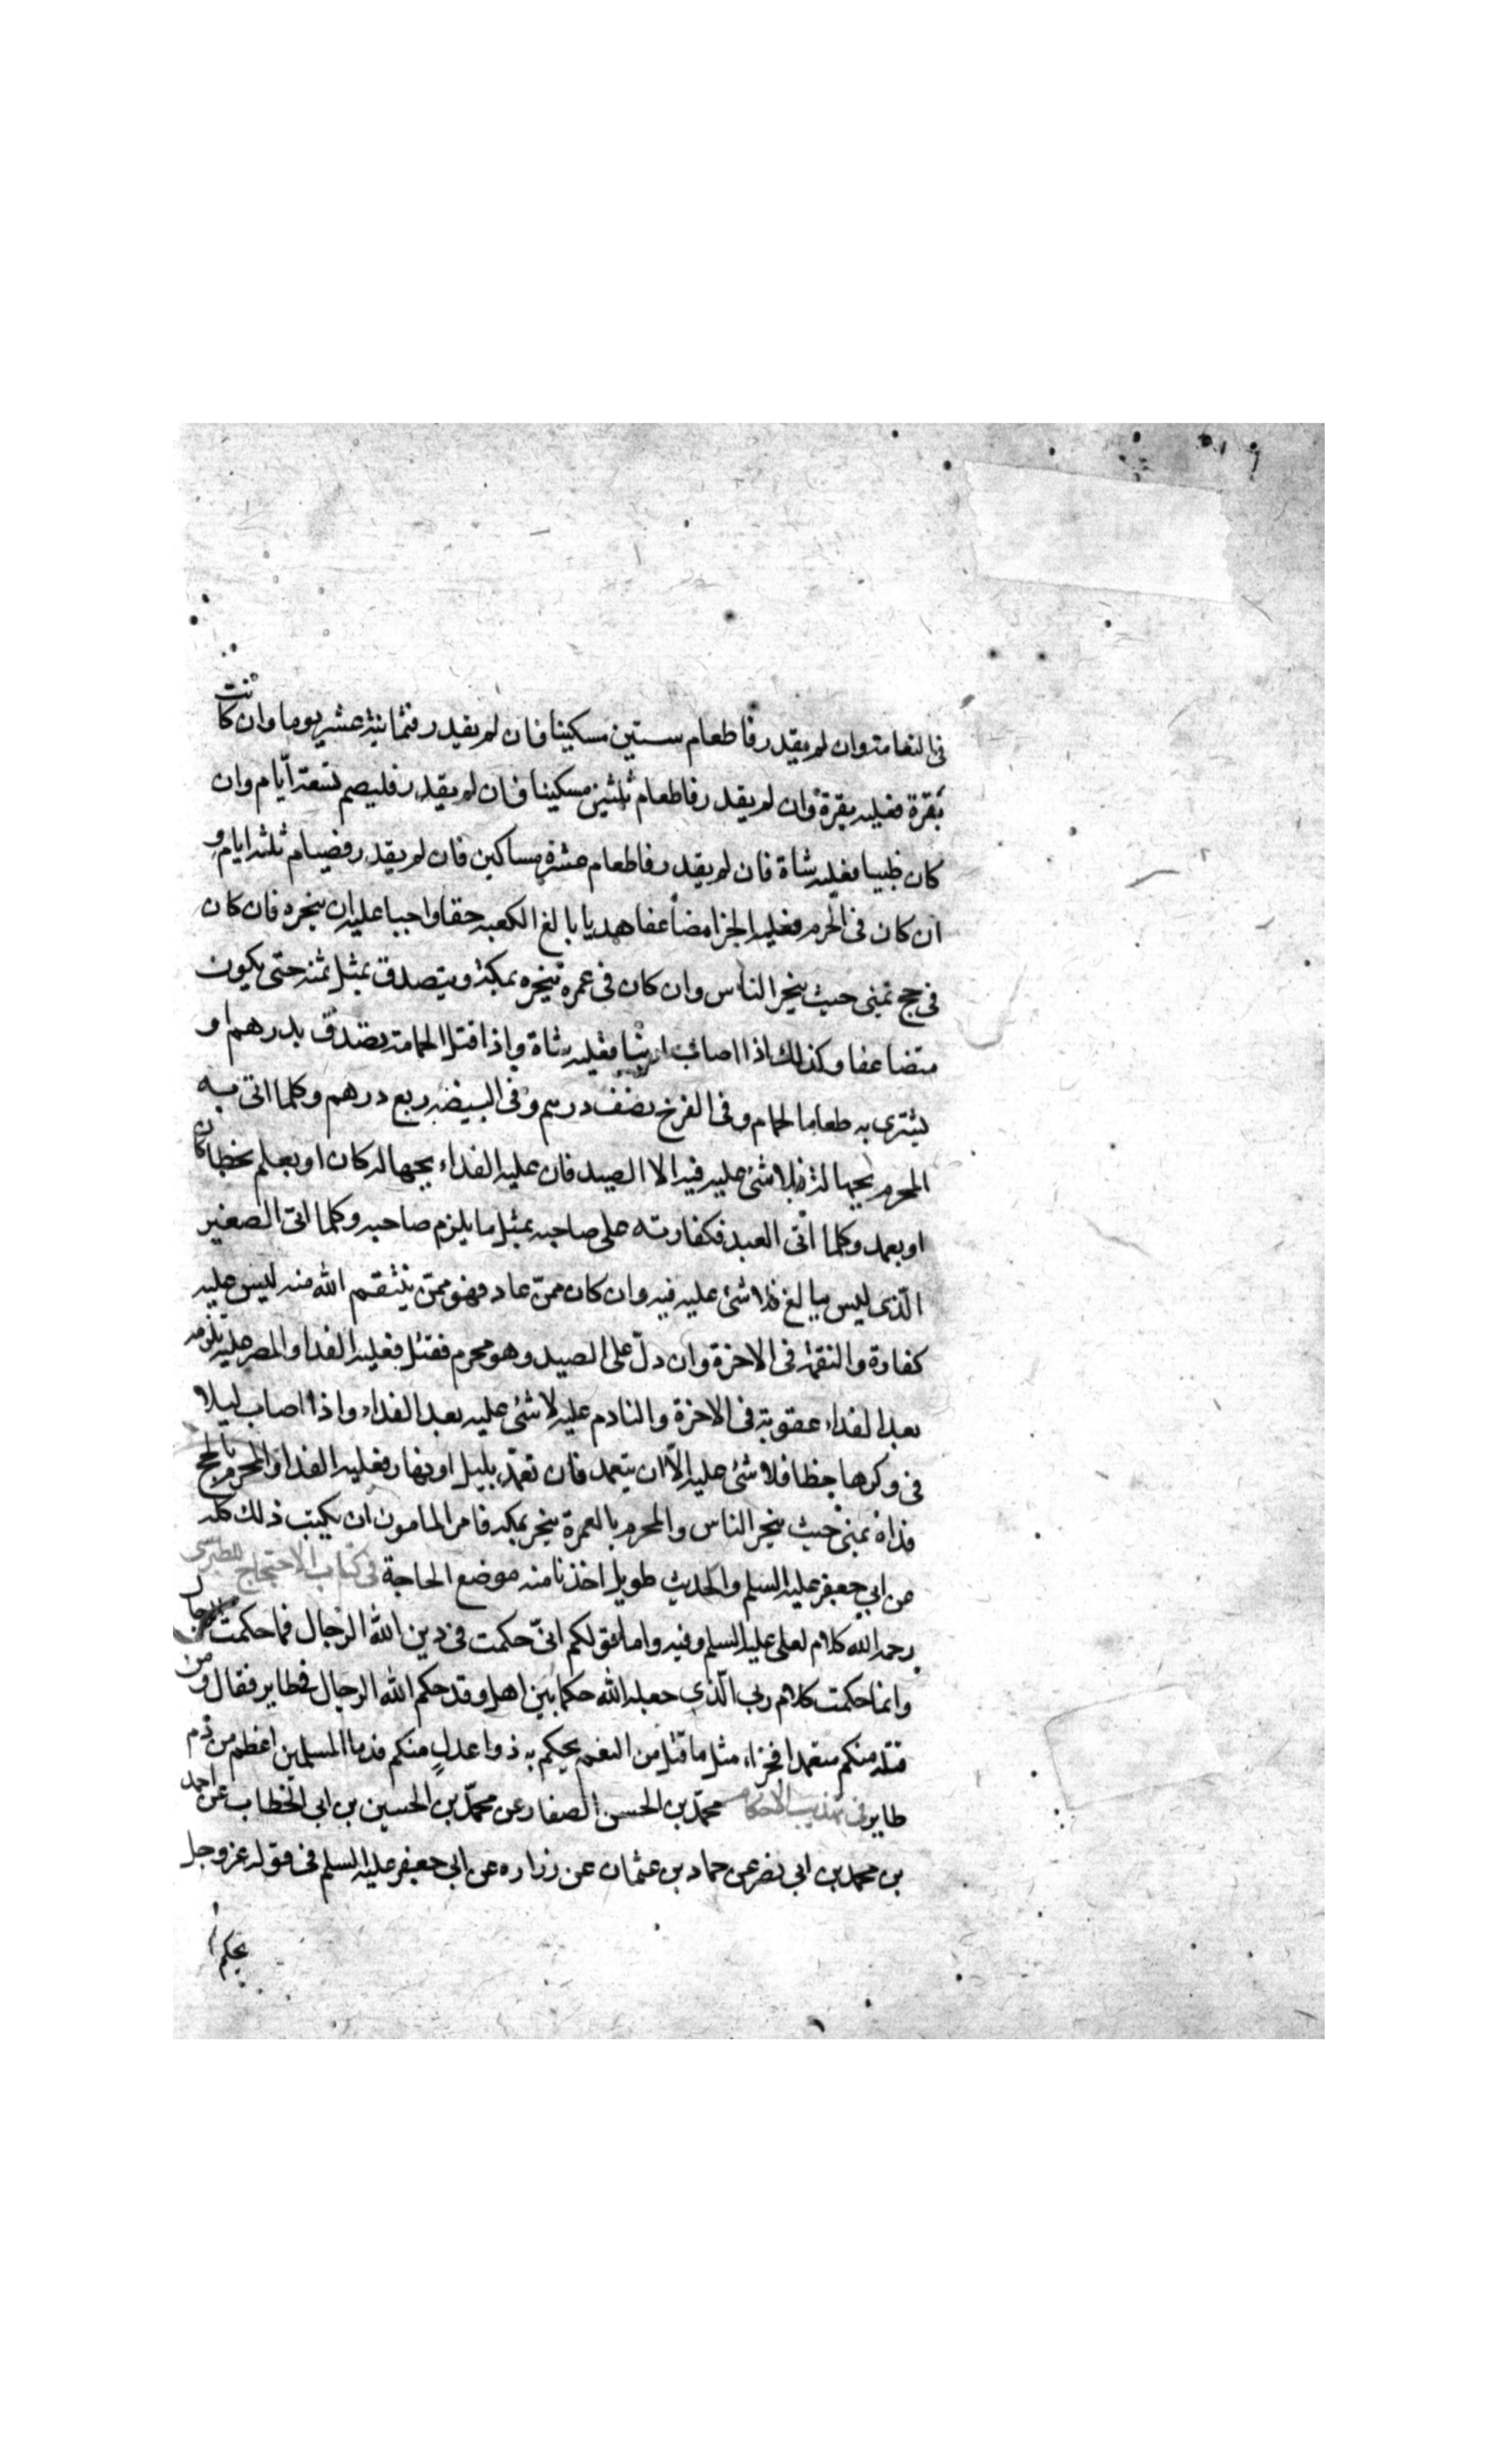 فى النعامة وان لم يقدر فاطعام ستين مسكينا فان لم يقدر فثمانية عشر يوما وان كانت
بقرة فعليه بقرة وان لم يقدر فاطعام ثلثين مسكينا فان لم يقدر فليصم تسعة ايّام وان
كان ظبيا فعليه شاة فان لم يقدر فاطعام عشرة مساكين فان لم يقدر فصيام ثلثه ايام و
ان كان فى الحرم فعليه الجزا مضاعفا هديا بالغ الكعبه حقا واجبا عليه ان ينحره فان كان
فى حج بمنى حيث ينحر الناس وان كان فى عمرة ينحره بمكة ويتصدق بمثل ثمنه حتى يكون
متضاعفا وكذلك اذا اصاب ارنبا فعليه شاة واذا قتل الحمامة تصدق بدرهم او
يشترى به طعاما لحمام وفى الفرخ نصف درهم وفى البيضه ربع درهم وكلما اتى به
المحرم بجهالة فلا شئ عليه فيه الا الصيد فان عليه الفداء بجهالة كان او بعلم بخطا كان
او بعمد وكلما اتى العبد فكفارته على صاحبه بمثل ما يلزم صاحبه وكلما اتى الصغير
الّذى ليس ببالغ فلا شئ عليه فيه وان كان ممّن عاد فهو ممّن ينتقم الله منه ليس عليه
كفارة والنقمة فى الاخرة وان دلّ على الصيد وهو محرم فقتل فعليه الفدا والمصر عليه يلزمه
بعد الفداء عقوبة فى الاخرة والنادم عليه لا شئ عليه بعد الفداء واذا اصاب ليلا
فى وكرها خطا فلا شئ عليه الّا ان يتعمد فان تعمّد بليل او نهار فعليه الفدا والمحرم بالحج
فداه بمنى حيث ينحر الناس والمحرم بالعمرة ينحر بمكه فامر المامون ان يكتب ذلك كله
عن ابى جعفر عليه السلم والحديث طويل اخذنا منه موضع الحاجة فى كتاب الاحتجاج للطبرسى
رحمه الله كلام لعلى عليه السلم وفيه واما قولكم انى حكمت فى دين الله الرجال فما حكمت الرجال
وانما حكمت كلام ربى الّذى جعله الله حكما بين اهله وقد حكم الله الرجال فى طاير فقال ومن
قتله منكم متعمدا فجزاء مثل ما قتل من النعم يحكم به ذوا عدلٍ منكم فدما المسلمين اعظم من دم
طاير فى تهذيب الاحكام محمّد بن الحسن الصفار عن محمّد بن الحسين بن ابى الخطاب عن احمد
بن محمد بن ابى نصر عن حماد بن عثمان عن زراره عن ابى جعفر عليه السلم فى قوله عز وجل
يحكم